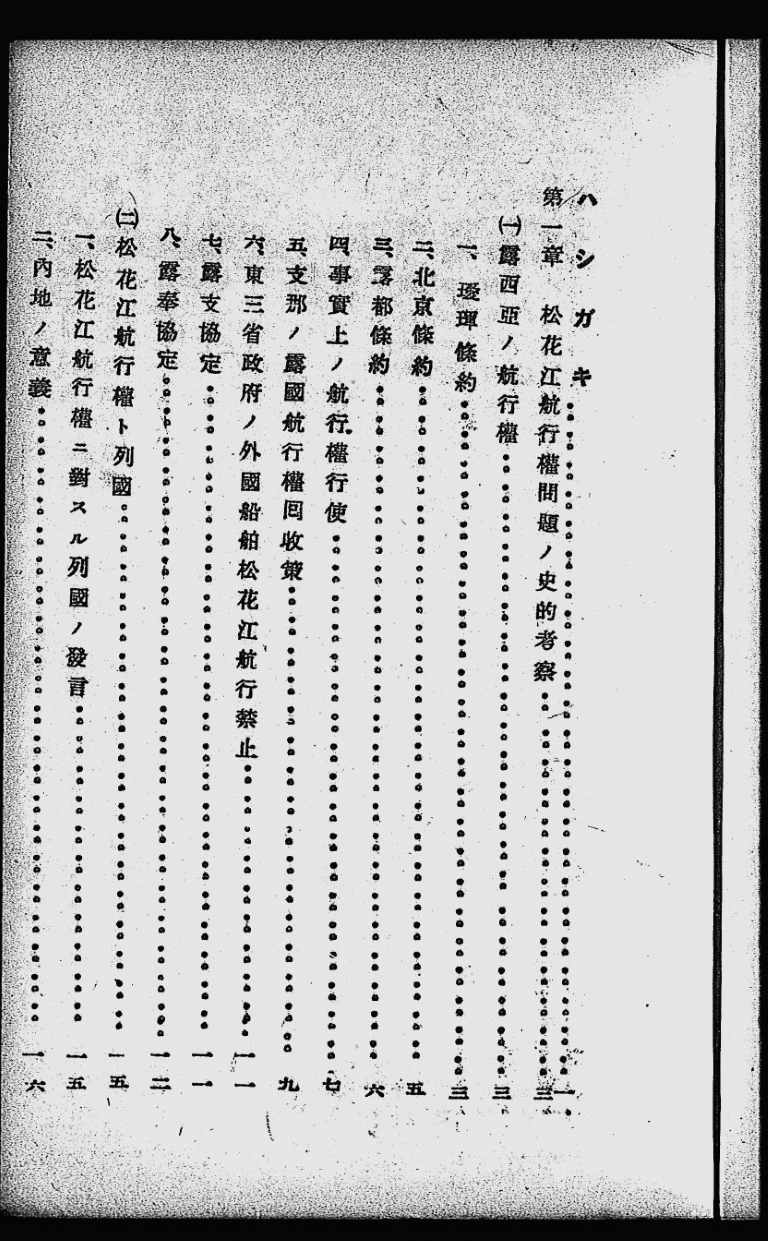 ハシガキ……一
第一章　松花江航行權問題ノ史的考察……三
㈠露西亞ノ航行權……三
一、璦琿條約……三
二、北京條約……五
三、露都條約……六
四、事實上ノ航行權行使……七
五、支那ノ露國航行權回收策……九
六、東三省政府ノ外國船舶松花江航行禁止……一一
七、露支協定……一一
八、露奉協定……一二
㈡松花江航行權ト列國……一五
一、松花江航行權ニ對スル列國ノ發言……一五
二、內地ノ意義……一六